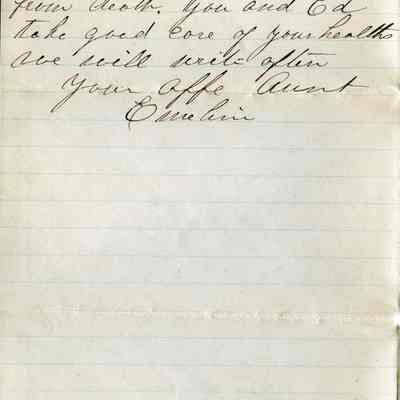 from death. You and Ed
take good care of your healths
we will write often
Your Affe Aunt
Emeline